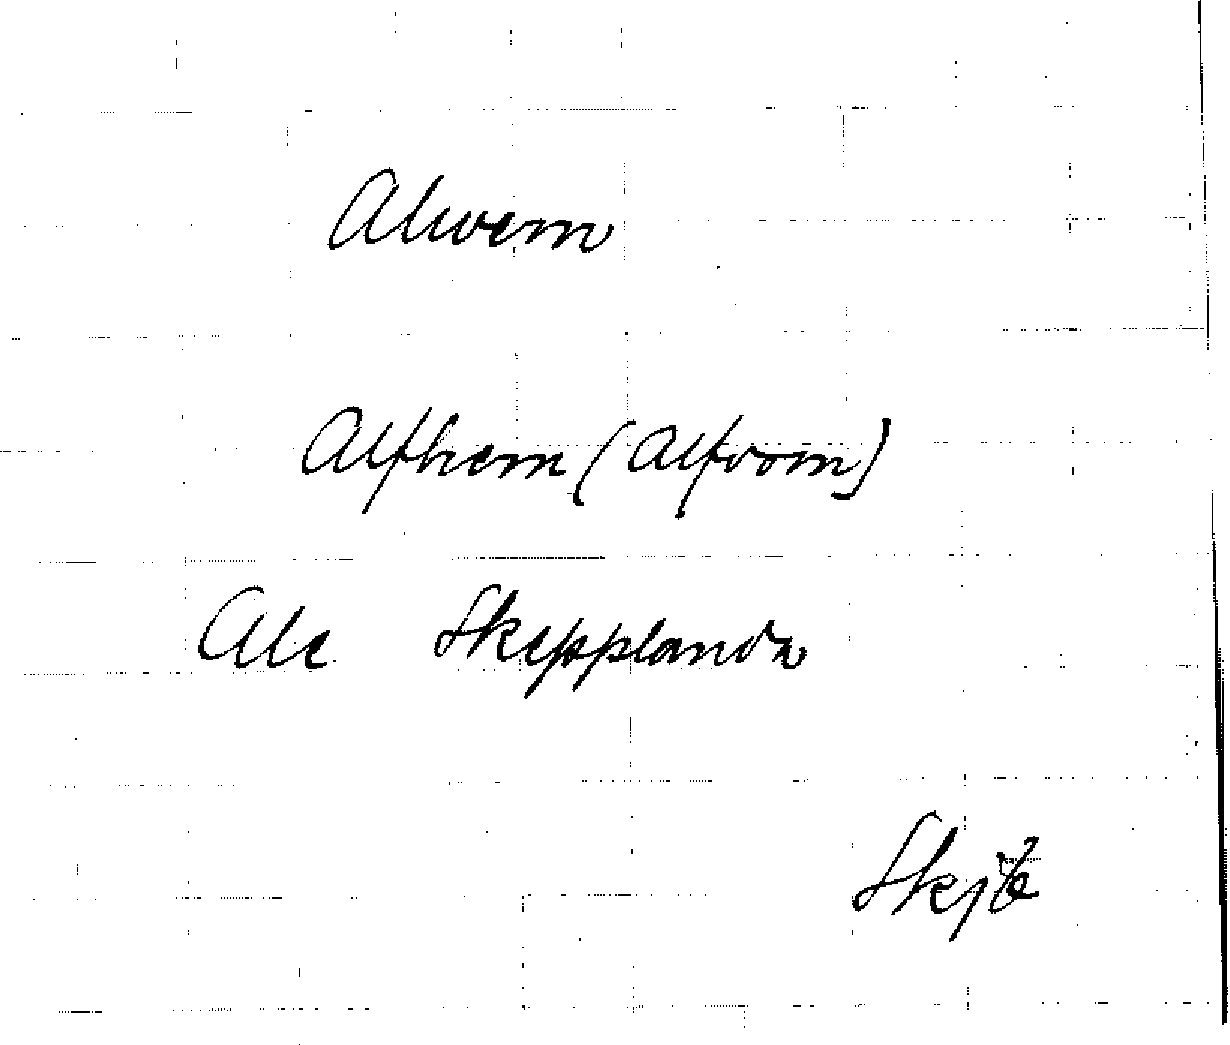 Alwem
Alfhem (Alfvom)
Ale Skepplanda